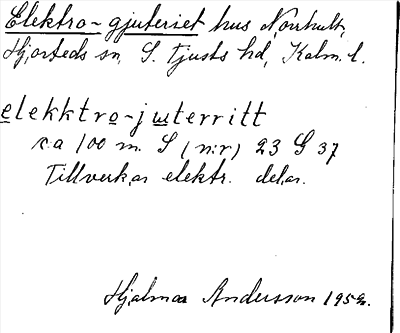 Elektro-gjuteriet hus Norrhult,
Hjorteds sn, S. Tjusts hd, Kalm. l.
elekktro-juterritt
ca 100 m. S (n:r) 23 G 37
Tillverkar elektr. delar.
Hjalmar Andersson